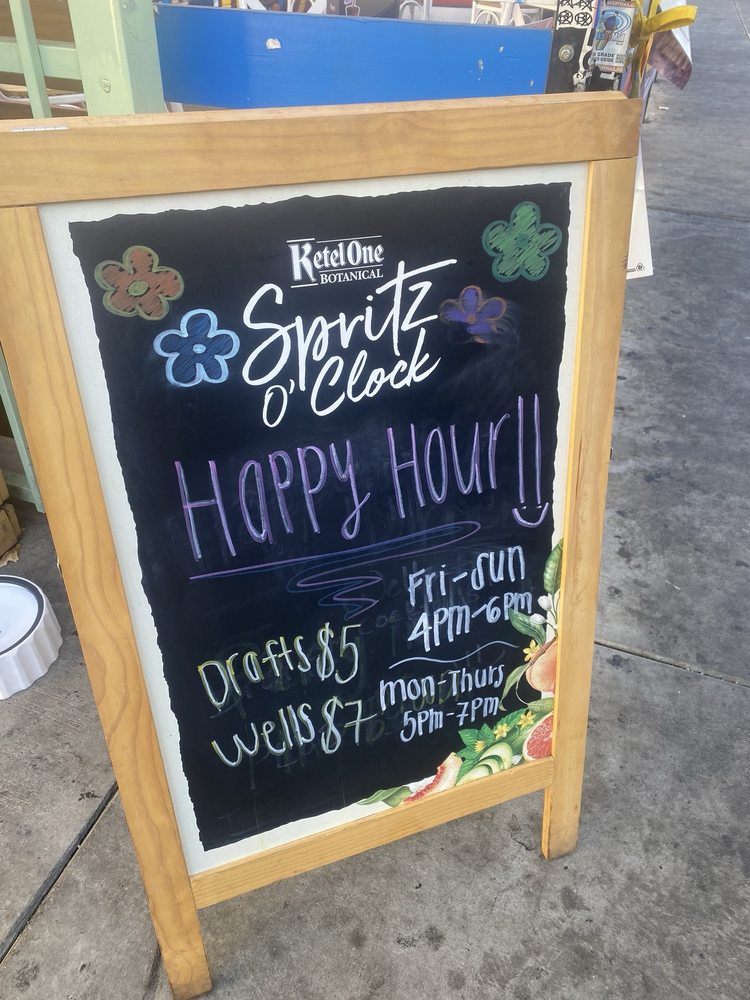 Ketel One
BOTANICAL
Spritz
O'Clock
Happy Hour!!
Fri-Sun
4pm-6pm
Drafts $5
Wells $7
Mon-Thurs
5pm-7pm